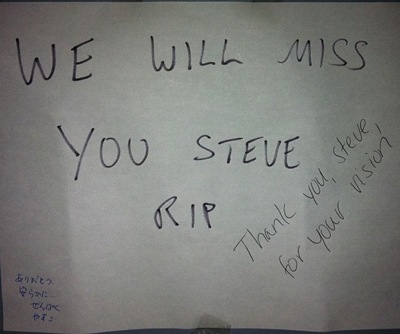 WE WILL MISS
YOU STEVE
RIP
Thank you, steve
for your vision!
ありがとう
安らかに